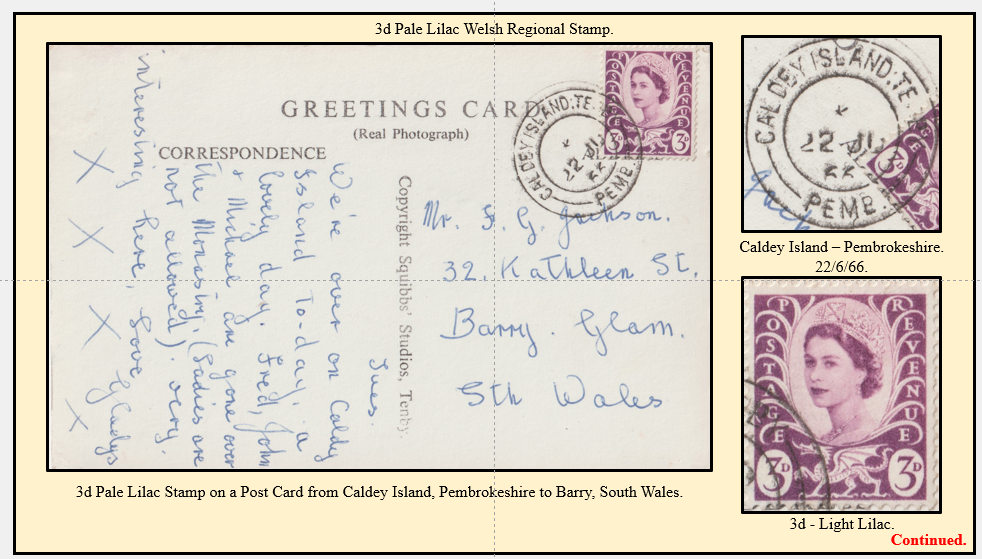 3d Pale Lilac Welsh Regional Stamp.
GREETINGS CARD
(Real Photograph)
CORRESPONDENCE
Copyright Squibbs' Studios, Tenby.
POSTAGE
REVENUE
3D
3D
CALDEY ISLAND.TE
22 JU
PEMB.
Tues.
We're over on Caldy
Island To-day, a
lovely day. Fred, John
& Michael are gone over
the Monastry. (Ladies are
not allowed). very
interesing here, Love Gladys
X X X X
Mr. S. G. Jackson.
32. Kathleen St.
Barry. Glam.
Sth Wales
3d Pale Lilac Stamp on a Post Card from Caldey Island, Pembrokeshire to Barry, South Wales.
CALDEY ISLAND.TE
22 JU
PEMB.
3D
Caldey Island – Pembrokeshire.
22/6/66.
POSTAGE
REVENUE
3D
3D
3d - Light Lilac.
Continued.